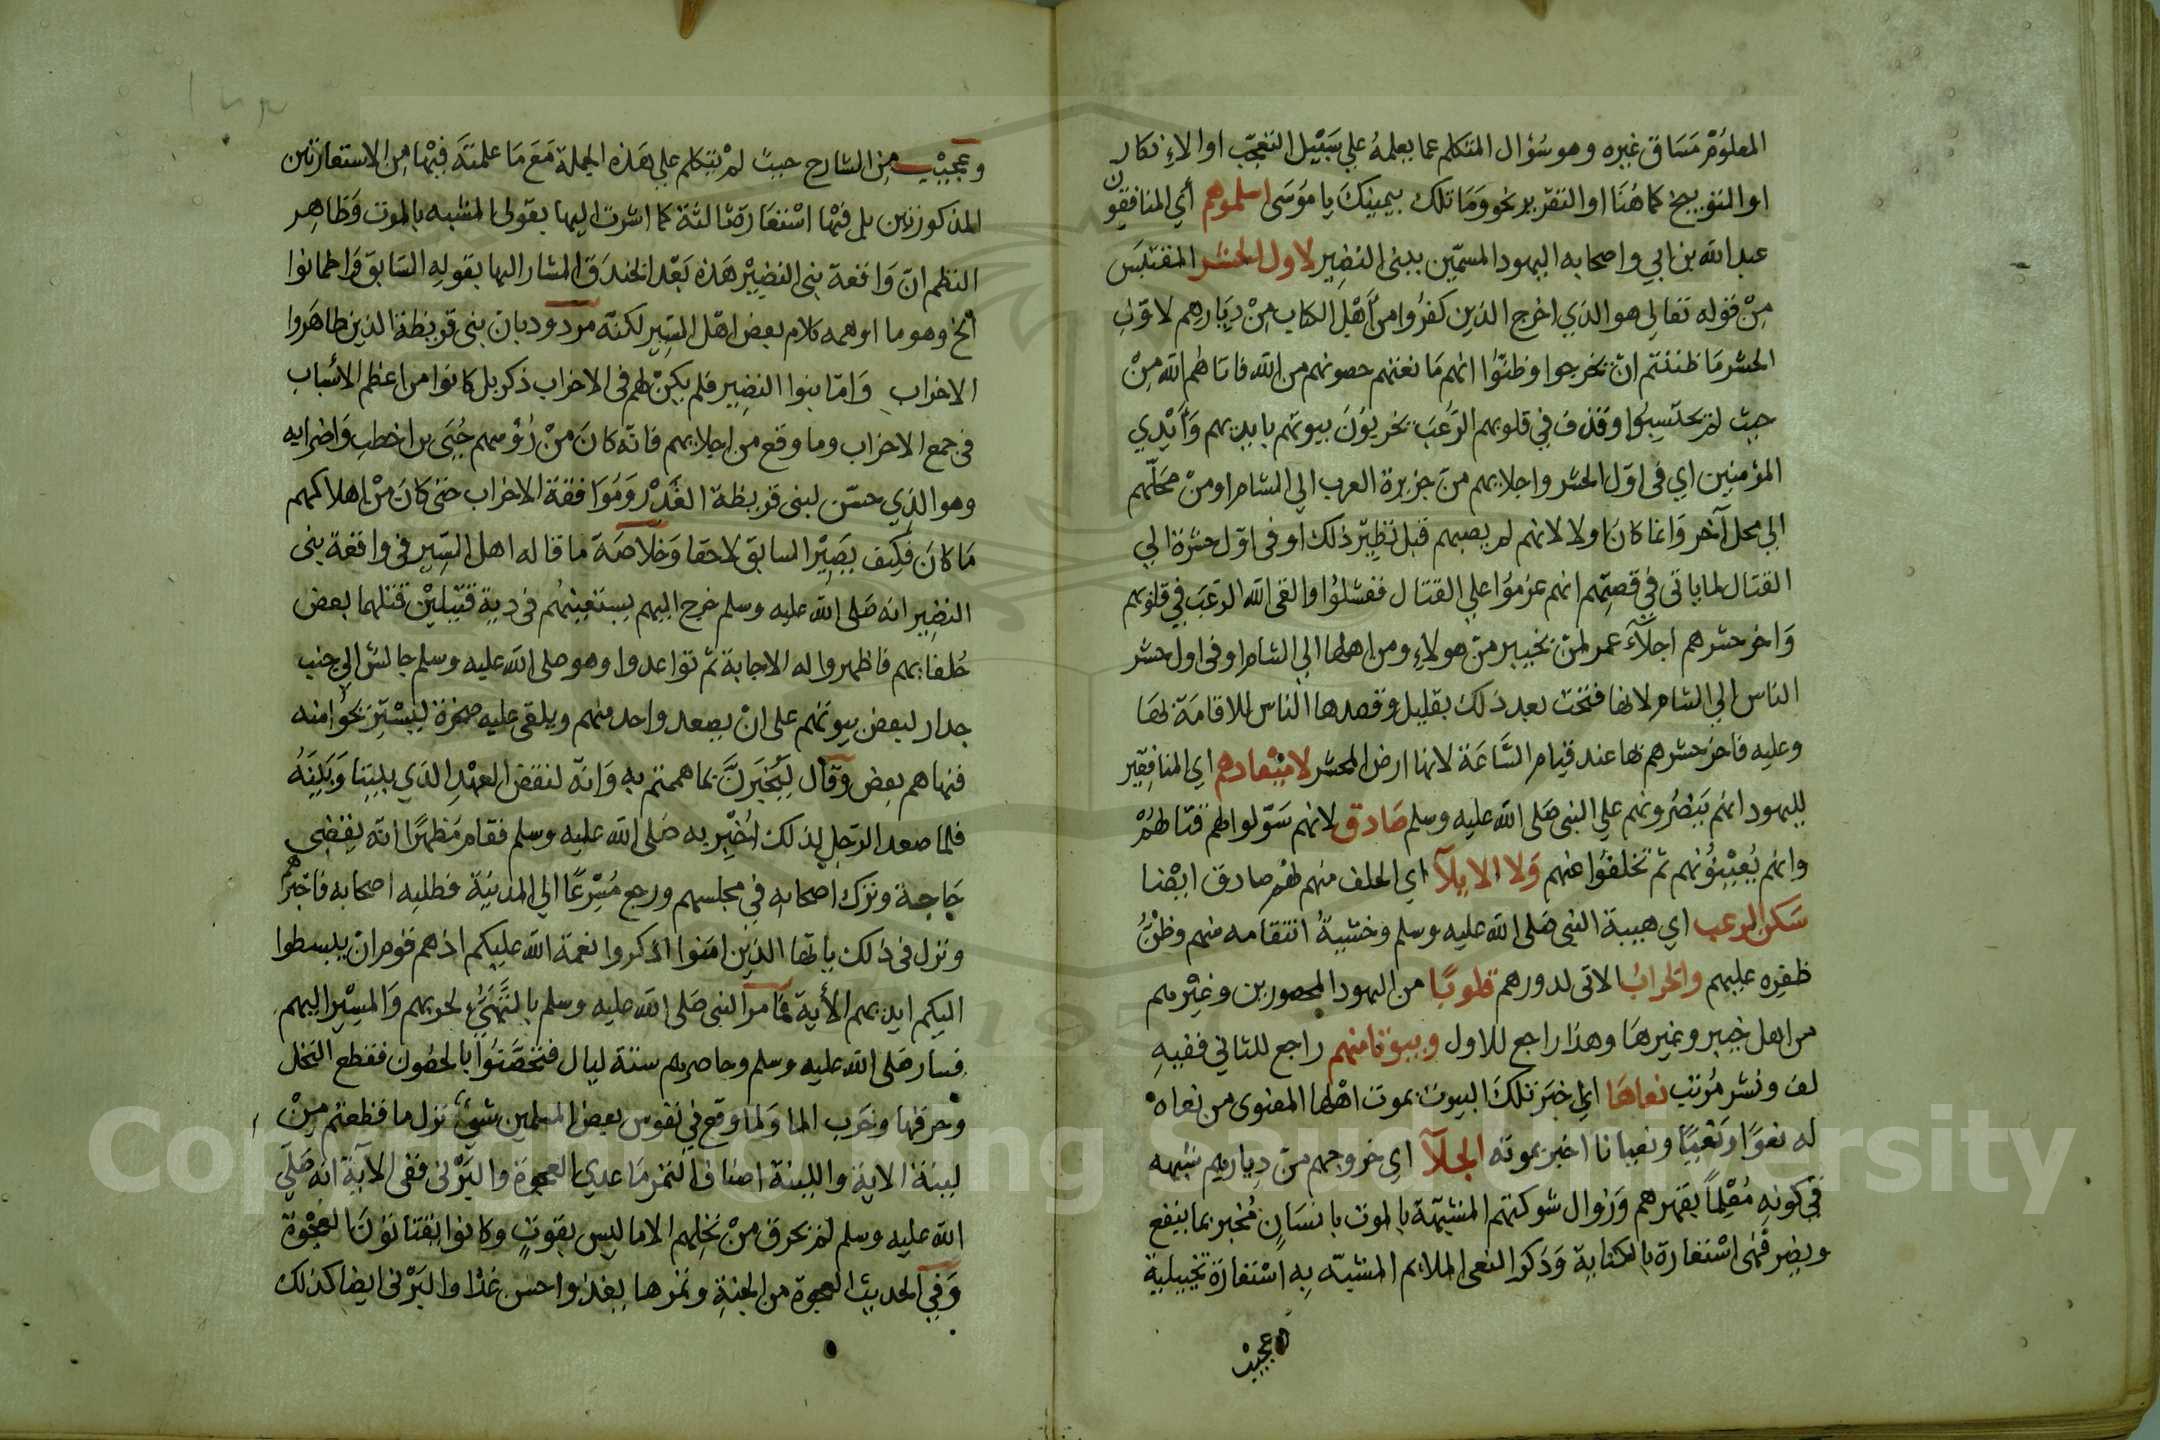 المعلوم مساق غيره وهو سؤال المتكلم عما يعلمه علي سبيل التعجب او الانكار
او التوبيخ كما هنا او التقرير نحو وما تلك بيمينك يا موسى اسلموهم أي المنافقون
عبد الله بن ابي واصحابه اليهود المسمين ببني النضير لاول الحشر المقتبس
من قوله تعالي هو الذي اخرج الذين كفروا من أهل الكتاب من ديارهم لاول
الحشر ما ظننتم ان يخرجوا وظنوا انهم مانعتهم حصونهم من الله فاتاهم الله من
حيث لم يحتسبوا وقذف في قلوبهم الرعب يخربون بيوتهم بايديهم وأيدي
المؤمنين اي في اول الحشر واجلايهم من جزيرة العرب الي الشام او من محلهم
الي محل آخر وانما كان اولا لانهم لم يصبهم قبل نظير ذلك او في اول حشره الي
القتال لما ياتي في قصتهم انهم عزموا علي القتال ففشلوا والقى الله الرعب في قلوبهم
واخر حشرهم اجلاء عمر لمن بخيبر من هولاء ومن اهلها الي الشام او في اول حشر
الناس الي الشام لانها فتحت بعد ذلك بقليل وقصدها الناس للاقامة بها
وعليه فاخر حشرهم بها عند قيام الساعة لانها ارض المحشر لا ميعادهم اي المنافقين
لليهود انهم ينصرونهم علي النبي صلى الله عليه وسلم صادق لانهم سولوا لهم قتالهم
وانهم يعينونهم ثم تخلفوا عنهم ولا الايلآ اي الحلف منهم لهم صادق ايضا
سكن الرعب اي هيبة النبي صلى الله عليه وسلم وخشية انتقامه منهم وظن
ظفره عليهم والخراب الاتى لدورهم قلوبا من اليهود المحصورين وغيرهم
من اهل خيبر وغيرها وهذا راجع للاول وبيوتا منهم راجع للثاني ففيه
لف ونشر مرتب نعاها اي خبر تلك البيوت بموت اهلها المعنوى من نعاه
له نعوا ونعيا ونعيانا اخبر بموته الجلآ اي خروجهم من ديارهم شبهه
في كونه معلما بقهرهم وزوال شوكتهم المشبهة بالموت بانسان مخبر بما ينفع
ويضر فهى استعارة بالكناية وذكر النعى الملايم المشبه به استعارة تخييلية
وعجيب
وعجيب من الشارح حيث لم يتكلم علي هذه الجملة مع ما علمته فيها من الاستعارتين
المذكورتين بل فيها استعارة ثالثة كما اشرت اليها بقولى المشبه بالموت وظاهر
النظم ان واقعة بني النضير هذه بعد الخندق المشار اليها بقوله السابق واطمانوا
الخ وهو ما اوهمه كلام بعض اهل السير لكنه مردود بان بني قريظة الذين ظاهروا
الاحزاب واما بنوا النضير فلم يكن لهم في الاحزاب ذكر بل كانوا من اعظم الأسباب
في جمع الاحزاب وما وقع من اجلايهم فانه كان من رؤسهم حيى بن اخطب واضرابه
وهو الذي حسن لبني قريظة الغدر وموافقة الاحزاب حتى كان من اهلاكهم
ما كان فكيف يصير السابق لاحقا وخلاصة ما قاله اهل السير في واقعة بني
النضير انه صلى الله عليه وسلم خرج اليهم يستعينهم في دية قتيلين قتلهما بعض
حلفايهم فاظهروا له الاجابة ثم تواعدوا وهو صلى الله عليه وسلم جالس الي جنب
جدار لبعض بيوتهم على ان يصعد واحد منهم ويلقى عليه صخرة ليستريحوا منه
فنهاهم بعض وقال ليخبرن بما هممتم به وانه لنقض العهد الذي بيننا وبينه
فلما صعد الرجل لذلك اخبر به صلى الله عليه وسلم فقام مظهرا انه يقضي
حاجة وترك اصحابه في مجلسهم ورجع مسرعا الي المدينة فطلبه اصحابه فاخبرهم
ونزل في ذلك يا ايها الذين امنوا اذكروا نعمة الله عليكم اذ هم قوم ان يبسطوا
اليكم ايديهم الأية فامر النبي صلى الله عليه وسلم بالتهيئ لحربهم والمسير اليهم
فسار صلى الله عليه وسلم وحاصرهم ستة ليال فتحصنوا بالحصون فقطع النخل
وحرقها وخرب الما ولما وقع في نفوس بعض المسلمين شيء نزل ما قطعتم من
لينة الاية واللينة اصناف التمر ما عدي العجوة والبرني ففي الآية انه صلي
الله عليه وسلم لم يحرق من نخلهم الا ما ليس بقوت وكانوا يقتاتون العجوة
وفي الحديث العجوة من الجنة وثمرها يغذوا احسن غذا والبرني ايضا كذلك
Copyright King Saud University